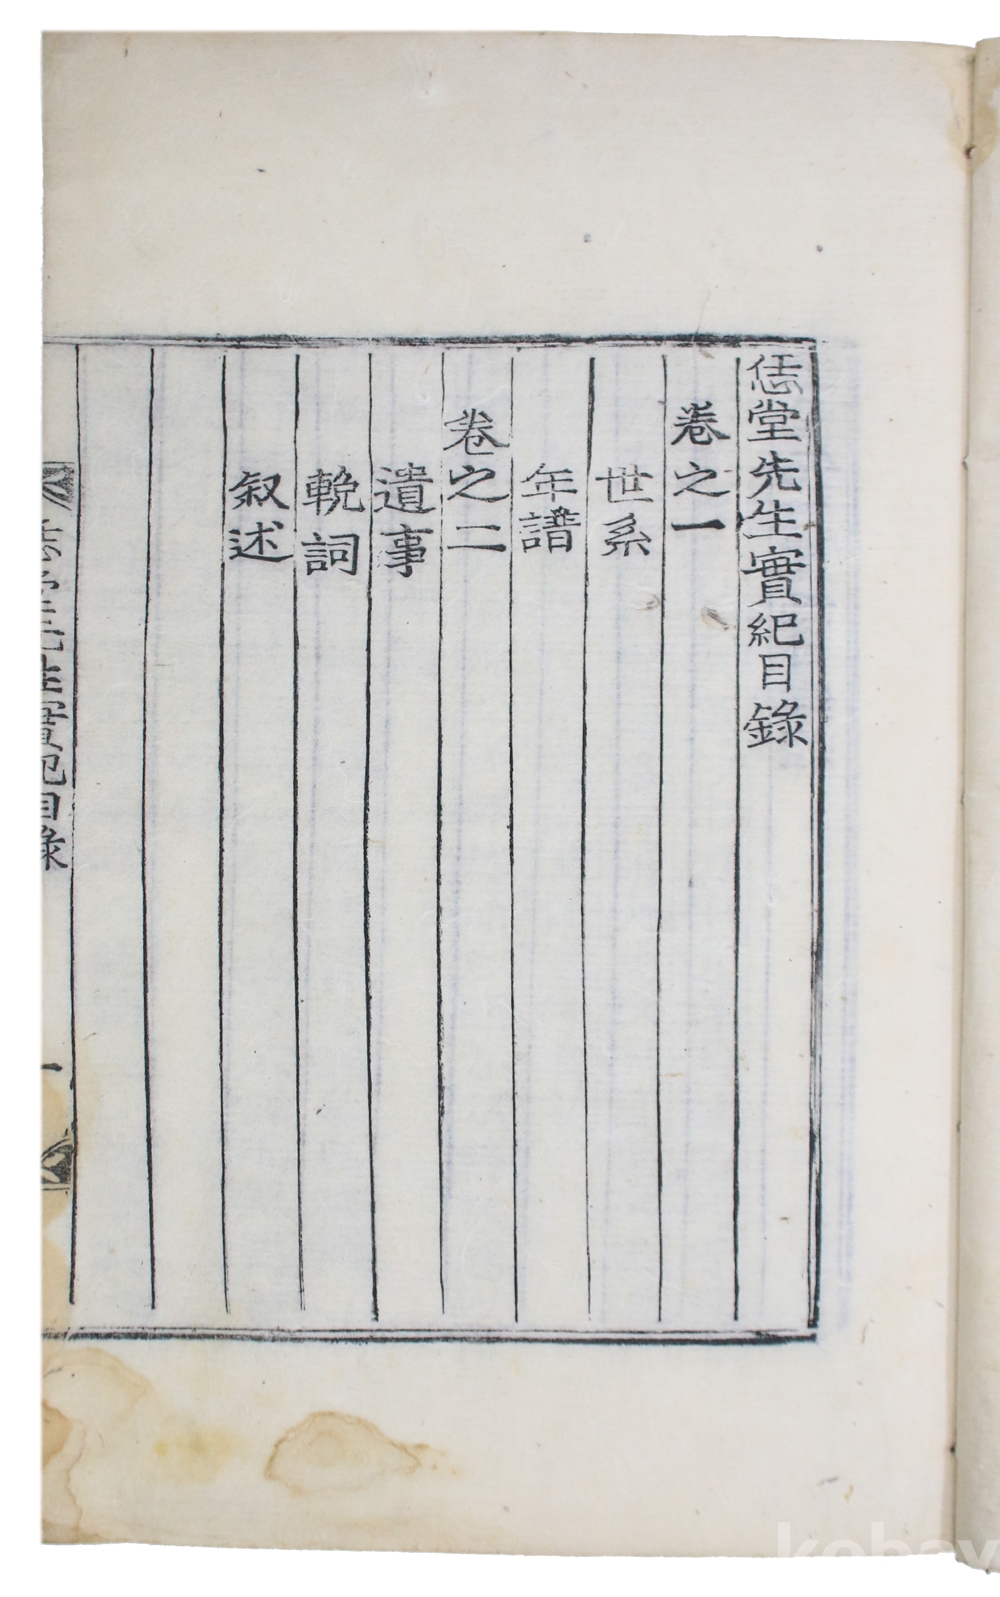 恁堂先生實紀目錄
卷之一
世系
年譜
卷之二
遺事
輓詞
叙述
堂先生實紀目錄
一
kobay